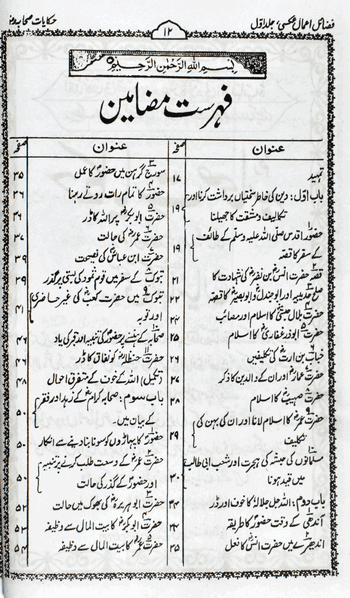 فضائل اعمال عکسی، جلد اول
۱۲
حکایات صحابہ
بِسْمِ اللهِ الرَّحْمٰنِ الرَّحِيْمِ
فہرست مضامین
عنوان صفحہ
تمہید ۱۷
باب اول: دین کی خاطر سختیاں برداشت کرنا اور
تکالیف و مشقت کا جھیلنا ۱۹
حضور اقدس صلی اللہ علیہ وسلم کے طائف
کے سفر کا قصہ ۱۹
قصہ حضرت انس بن نضر کی شہادت کا ۲۱
صلح حدیبیہ اور ابوجندل اور ابوبصیر کا قصہ ۲۲
حضرت بلال حبشی کا اسلام اور مصائب ۲۴
حضرت ابوذر غفاری کا اسلام ۲۵
خباب بن الارت کی تکلیفیں ۲۶
حضرت عمار اور ان کے والدین کا ذکر ۲۷
حضرت صہیب کا اسلام ۲۸
حضرت عمر کا اسلام لانا اور ان کی بہن کی
تکلیف ۲۹
مسلمانوں کی حبشہ کی ہجرت اور شعب ابی طالب
میں قید ہونا ۳۰
باب دوم: اللہ جل جلالہ کا خوف اور ڈر ۳۴
آندھی کے وقت حضور کا طریقہ ۳۴
اندھیرے میں حضرت انس کا فعل ۳۵
عنوان صفحہ
سورج گرہن میں حضور کا عمل ۳۵
حضور کا تمام رات روتے رہنا ۳۶
حضرت ابوبکر پر اللہ کا ڈر ۳۶
حضرت عمر کی حالت ۳۷
حضرت ابن عباس کی نصیحت ۳۹
تبوک کے سفر میں قوم ثمود کی بستی پر گذر ۴۰
تبوک میں حضرت کعب کی غیر حاضری
اور توبہ ۴۱
صحابہ کے ہنسنے پر حضور کی تنبیہ اور قبر کی یاد ۴۶
حضرت حنظلہ کو نفاق کا ڈر ۴۶
(تکمیل) اللہ کے خوف کے متفرق احوال ۴۸
باب سوم: صحابہ کرام کے زہد اور فقر
کے بیان میں۔ ۵۰
حضور کا پہاڑوں کو سونا بنا دینے سے انکار ۵۰
حضرت عمر کے وسعت طلب کرنے پر تنبیہ
اور حضور کے گذر کی حالت ۵۰
حضرت ابوہریرہ کی بھوک میں حالت ۵۲
حضرت ابوبکر کا بیت المال سے وظیفہ ۵۳
حضرت عمر کا بیت المال سے وظیفہ ۵۴